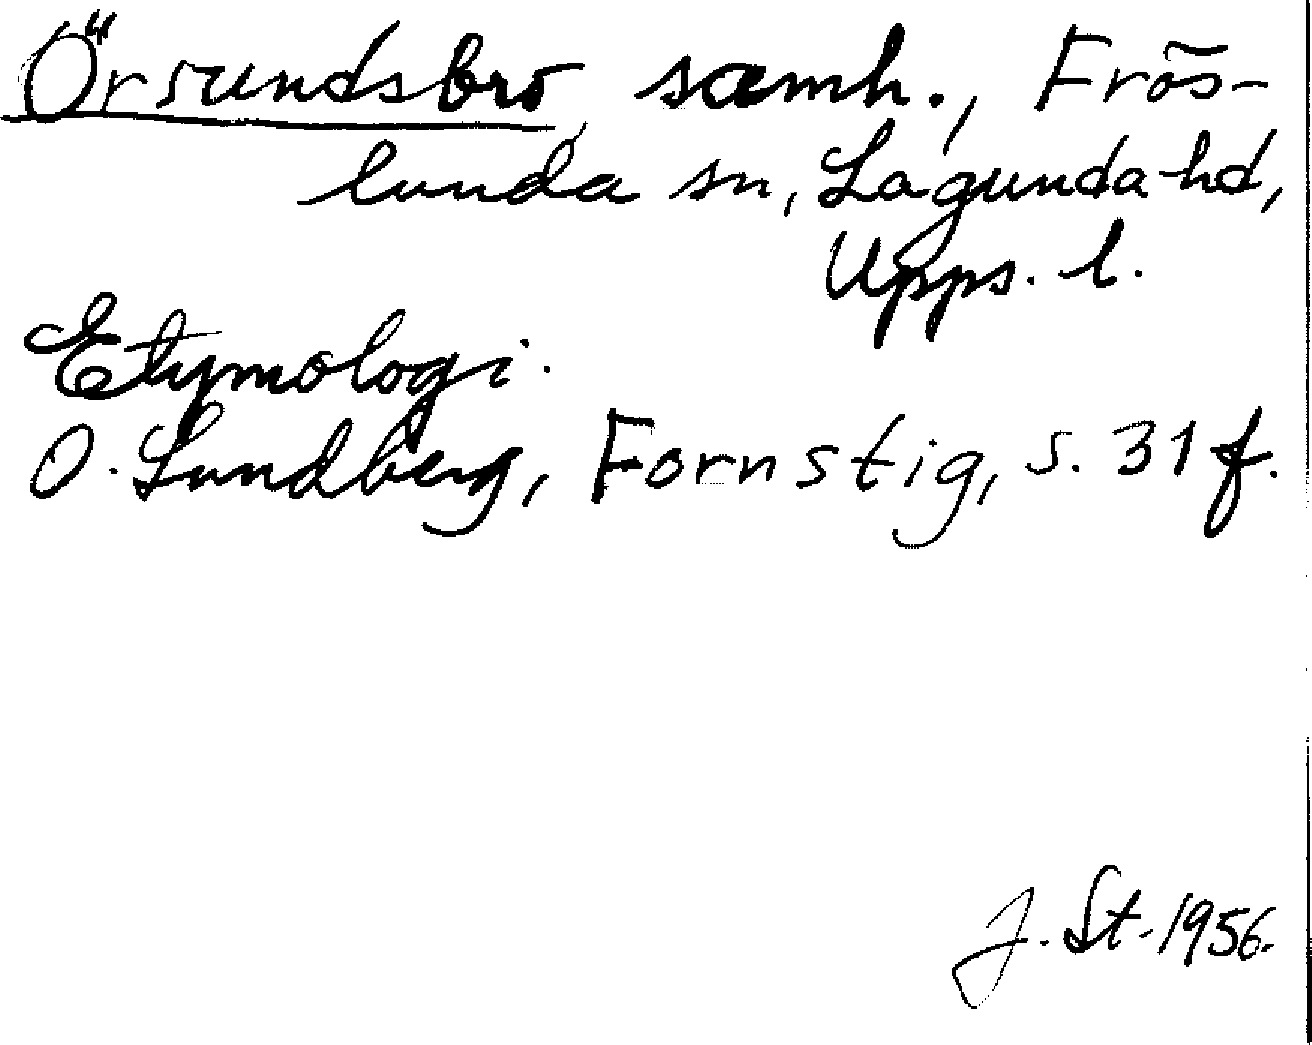 Örsundsbro samh., Frös-
lunda sn, Lagunda hd,
Upps. l.
Etymologi.
O. Lundberg, Fornstig, s. 31 f.
J. St. 1956.